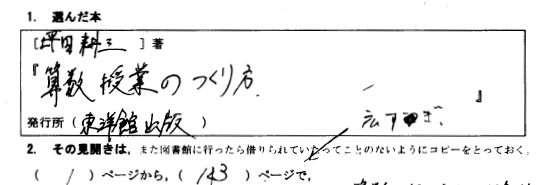 1. 選んだ本
[坪田耕三]著
『算数授業のつくり方.
』
発行所(東洋館出版)
広すぎ.
2. その見開きは,また図書館に行ったら借りられていたってことのないようにコピーをとっておく。
(1)ページから,(143)ページで,